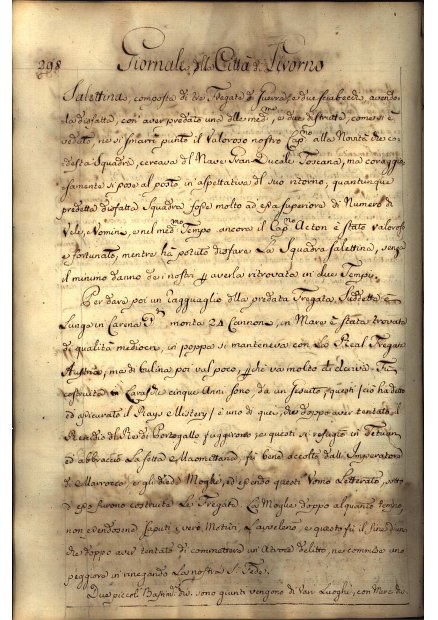 298 Giornali della Città di Livorno
Salettina, composta di tre Fregate di Guerra, e due Sciabecchi, avendo-
la disfatta, con aver predato una delle med.me, e due distrutte, come si è
veduto, ne si smarrì punto il Valoroso nostro Cap.no alla Novità che co
desta Squadra, cercava del Nave Gran Ducale Toscana, ma coraggio-
samente si pose al posto in aspettativa del suo ritorno, quantunque
predetta disfatta Squadra fosse molto ad essa superiore di Numero di
Vele, e Uomini, e nel med.mo Tempo ancora il Cap.no Acton è stato valoroso
e fortunato, mentre ha potuto disfare la Squadra Salettina, senza
il minimo danno de i nostri per averla ritrovata in due Tempi.
Per dare poi un ragguaglio della predata Fregata, Suddetta è
Lunga in Carena monta 24 Cannoni, in Mare è stata trovata
di qualità mediocre, in poppa si manteneva con la Real Fregata
Austria, ma di bulina poi val poco, perchè va molto di deriva. Fu
costruita in cinque Anni sono, da un Gesuita, questi ha detto
ed aplicavato il è uno di quei, che doppo aver tentato il
del Rè di Portogallo fuggirono, e questi si refugiò in Tetuan
ed abbracciò la Setta Maomettana, fù bene accolto dall' Imperatore
di Marrocco, e gli diede Moglie, ed essendo questi Uomo Letterato, sotto
d'esso furono costruite le Fregate. La Moglie doppo alquanto tempo,
non essendosene saputi i veri Motivi, l'avvelenò, e questo fù il fine d'uno
che doppo aver tentato di commettere un' Atroce delitto, ne commise uno
peggiore in rinegando la nostra S. Fede.
Due piccoli Bastim.ti che sono giunti vengono di Vari Luoghi, con Merc.